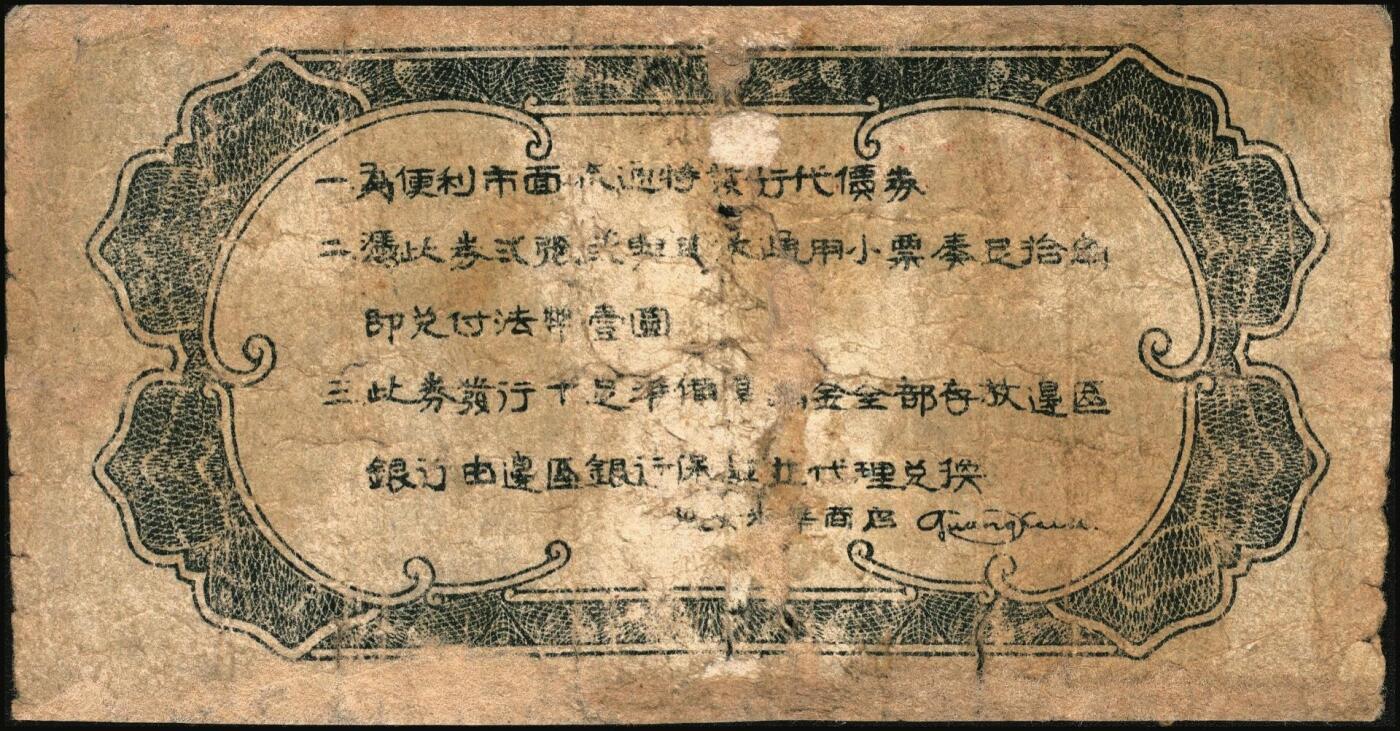 一 為便利市面流通特發行代價券
二 憑此券弍張或與其通用小票奏足拾
即兌付法幣壹圓
三 此券發行十足準備金全部存放邊區
銀行由邊區銀行保証並代理兌換
光華商店